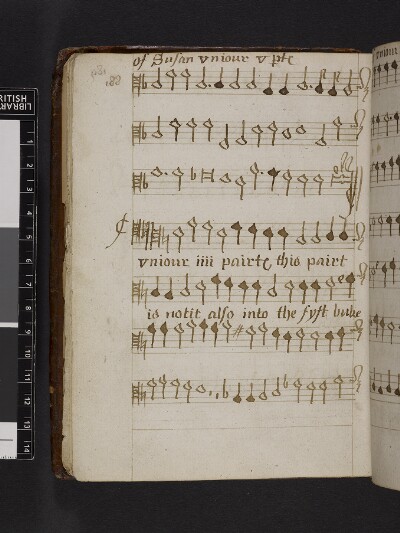 of Susan vniour v pte
vniour iiii pairte this pairt
is notit also into the fyft buke
vniour
BRITISH
LIBRARY
1
2
3
4
5
6
7
8
9
10
11
12
13
14